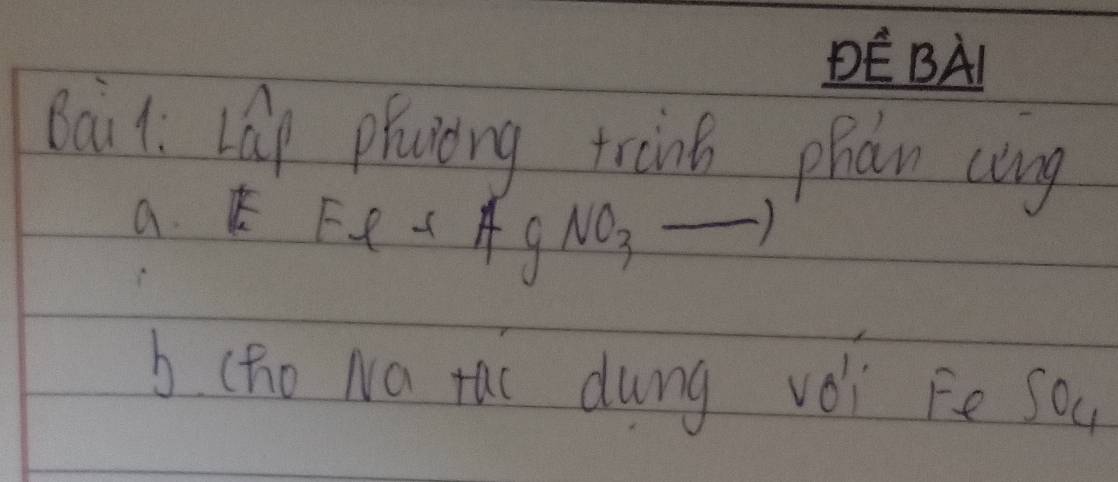 ĐỀ BÀI
Bài 1: Lập phương trình phản ứng
a. Fe + AgNO3 →
b. Cho Na tác dụng với FeSO4